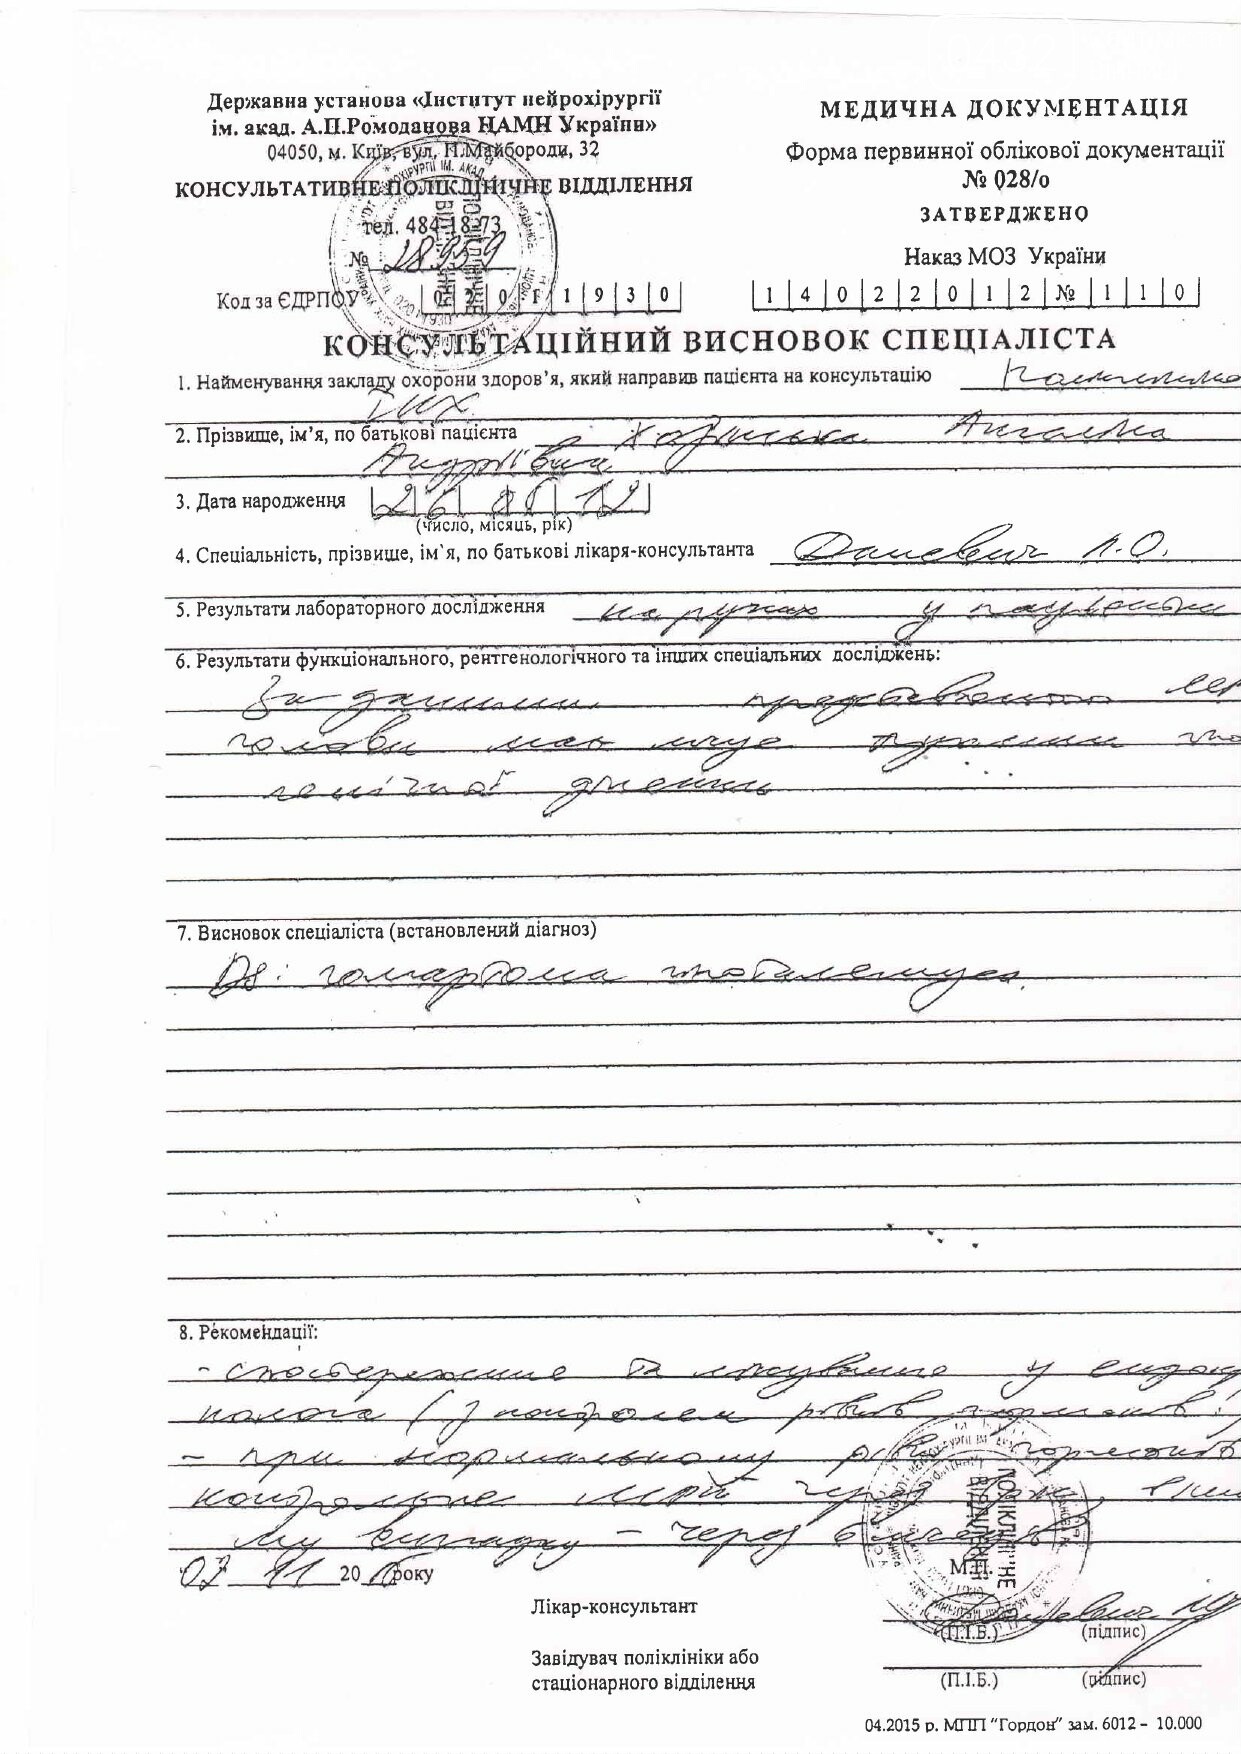 Державна установа «Інститут нейрохірургії
ім. акад. А.П.Ромоданова НАМН України»
04050, м. Київ, вул. П.Майбороди, 32
КОНСУЛЬТАТИВНЕ ПОЛІКЛІНІЧНЕ ВІДДІЛЕННЯ
тел. 484-18-73
№ 28959
Код за ЄДРПОУ 02011930
МЕДИЧНА ДОКУМЕНТАЦІЯ
Форма первинної облікової документації
№ 028/о
ЗАТВЕРДЖЕНО
Наказ МОЗ України
14022012№110
КОНСУЛЬТАЦІЙНИЙ ВИСНОВОК СПЕЦІАЛІСТА
1. Найменування закладу охорони здоров’я, який направив пацієнта на консультацію
2. Прізвище, ім’я, по батькові пацієнта Ангеліна
Андріївна
3. Дата народження 26 12
(число, місяць, рік)
4. Спеціальність, прізвище, ім`я, по батькові лікаря-консультанта Даневич
5. Результати лабораторного дослідження на руках у пацієнтки
6. Результати функціонального, рентгенологічного та інших спеціальних досліджень:
За даними представленого МРТ
голови має місце
7. Висновок спеціаліста (встановлений діагноз)
Ds: гамартома гіпоталамуса.
8. Рекомендації:
- спостереження та лікування у ендокри
нолога (з контролем рівнів гормонів)
- при нормальному рівні гормонів
контрольне МРТ через
му випадку – через 6
02 11 20 року
М.П.
Лікар-консультант
(П.І.Б.) (підпис)
Завідувач поліклініки або
стаціонарного відділення
(П.І.Б.) (підпис)
04.2015 р. МПП “Гордон” зам. 6012 – 10.000